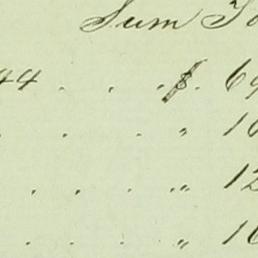 Sum To
44 . . . $. 6
. . . " 1
. . . " 12
. . . " 16